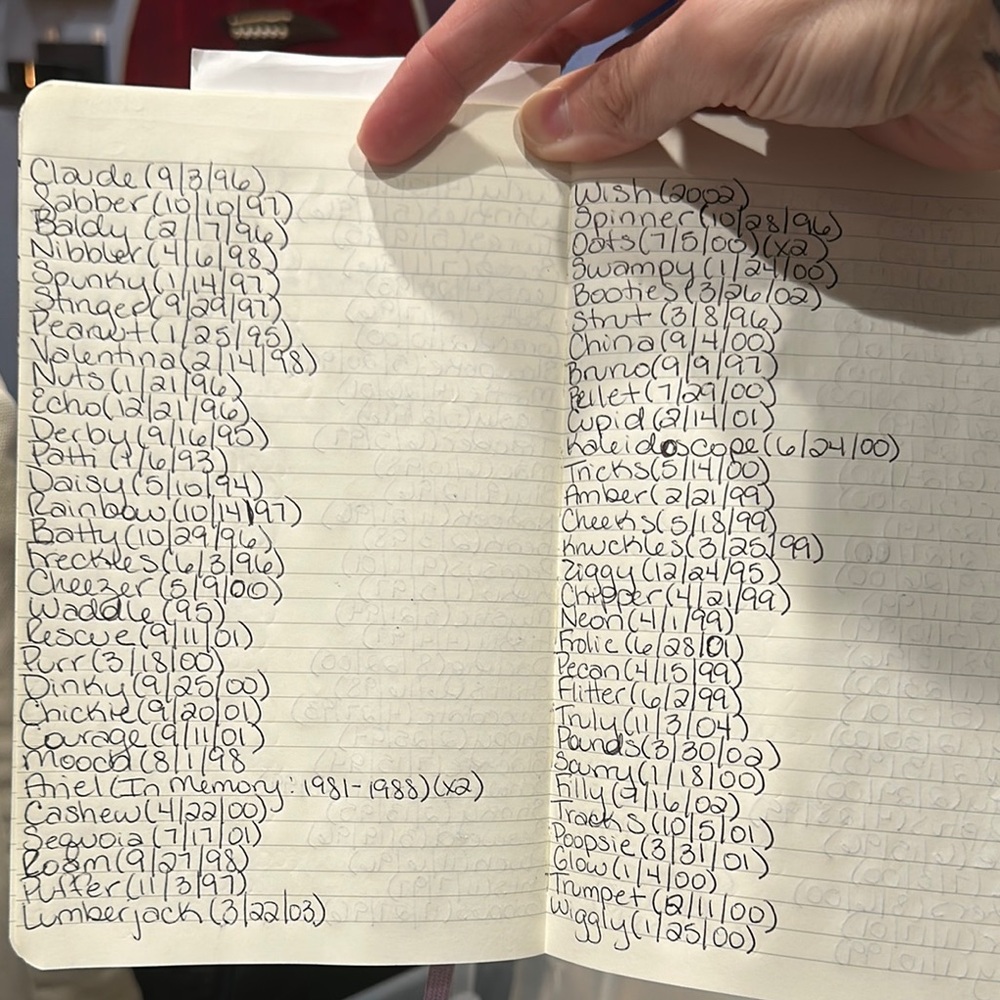 Claude (9/3/96)
Jabber (10/10/97)
Baldy (2/17/96)
Nibbler (4/6/98)
Spunky (1/14/97)
Stinger (9/29/97)
Peanut (1/25/95)
Valentina (2/14/98)
Nuts (1/21/96)
Echo (12/21/96)
Derby (9/16/95)
Patti (1/6/93)
Daisy (5/10/94)
Rainbow (10/14/97)
Batty (10/29/96)
Freckles (6/3/96)
Cheezer (5/9/00)
Waddle (95)
Rescue (9/11/01)
Purr (3/18/00)
Dinky (9/25/00)
Chickie (9/20/01)
Courage (9/11/01)
Mooch (8/1/98
Ariel (In Memory: 1981-1988) (x2)
Cashew (4/22/00)
Sequoia (7/17/01)
Roam (9/27/98)
Puffer (11/3/97)
Lumberjack (3/22/03)
Wish (2002)
Spinner (10/28/96)
Oats (7/5/00) (x2)
Swampy (1/24/00)
Booties (3/26/02)
Strut (3/8/96)
China (9/4/00)
Bruno (9/9/97)
Pellet (7/29/00)
Cupid (2/14/01)
Kaleidoscope (6/24/00)
Tricks (5/14/00)
Amber (2/21/99)
Cheeks (5/18/99)
Knuckles (3/25/99)
Ziggy (12/24/95)
Chipper (4/21/99)
Neon (4/1/99)
Frolic (6/28/01)
Pecan (4/15/99)
Flitter (6/2/99)
Truly (11/3/04)
Pounds (3/30/02)
Scurry (1/18/00)
Filly (9/16/02)
Tracks (10/5/01)
Poopsie (3/31/01)
Glow (1/4/00)
Trumpet (2/11/00)
Wiggly (1/25/00)